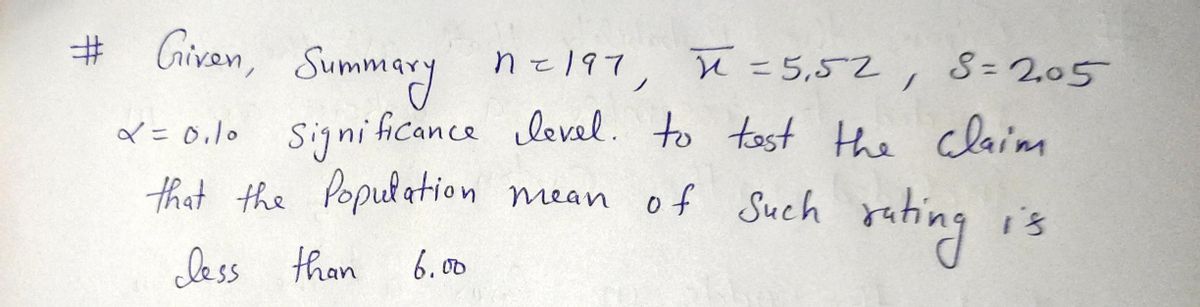 # Given, Summary n = 197, x̅ = 5.52, S = 2.05
α = 0.10 significance level. to test the claim
that the Population mean of Such rating is
less than 6.00